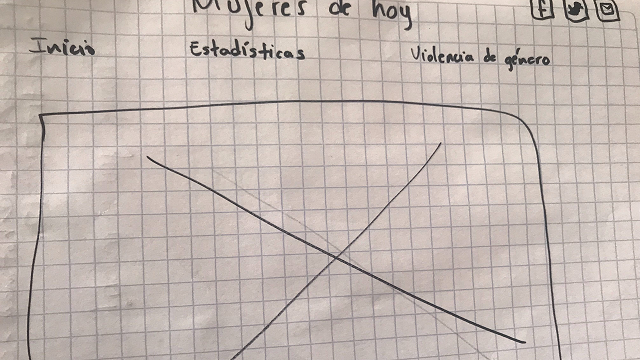 Mujeres de hoy
Inicio Estadísticas Violencia de género